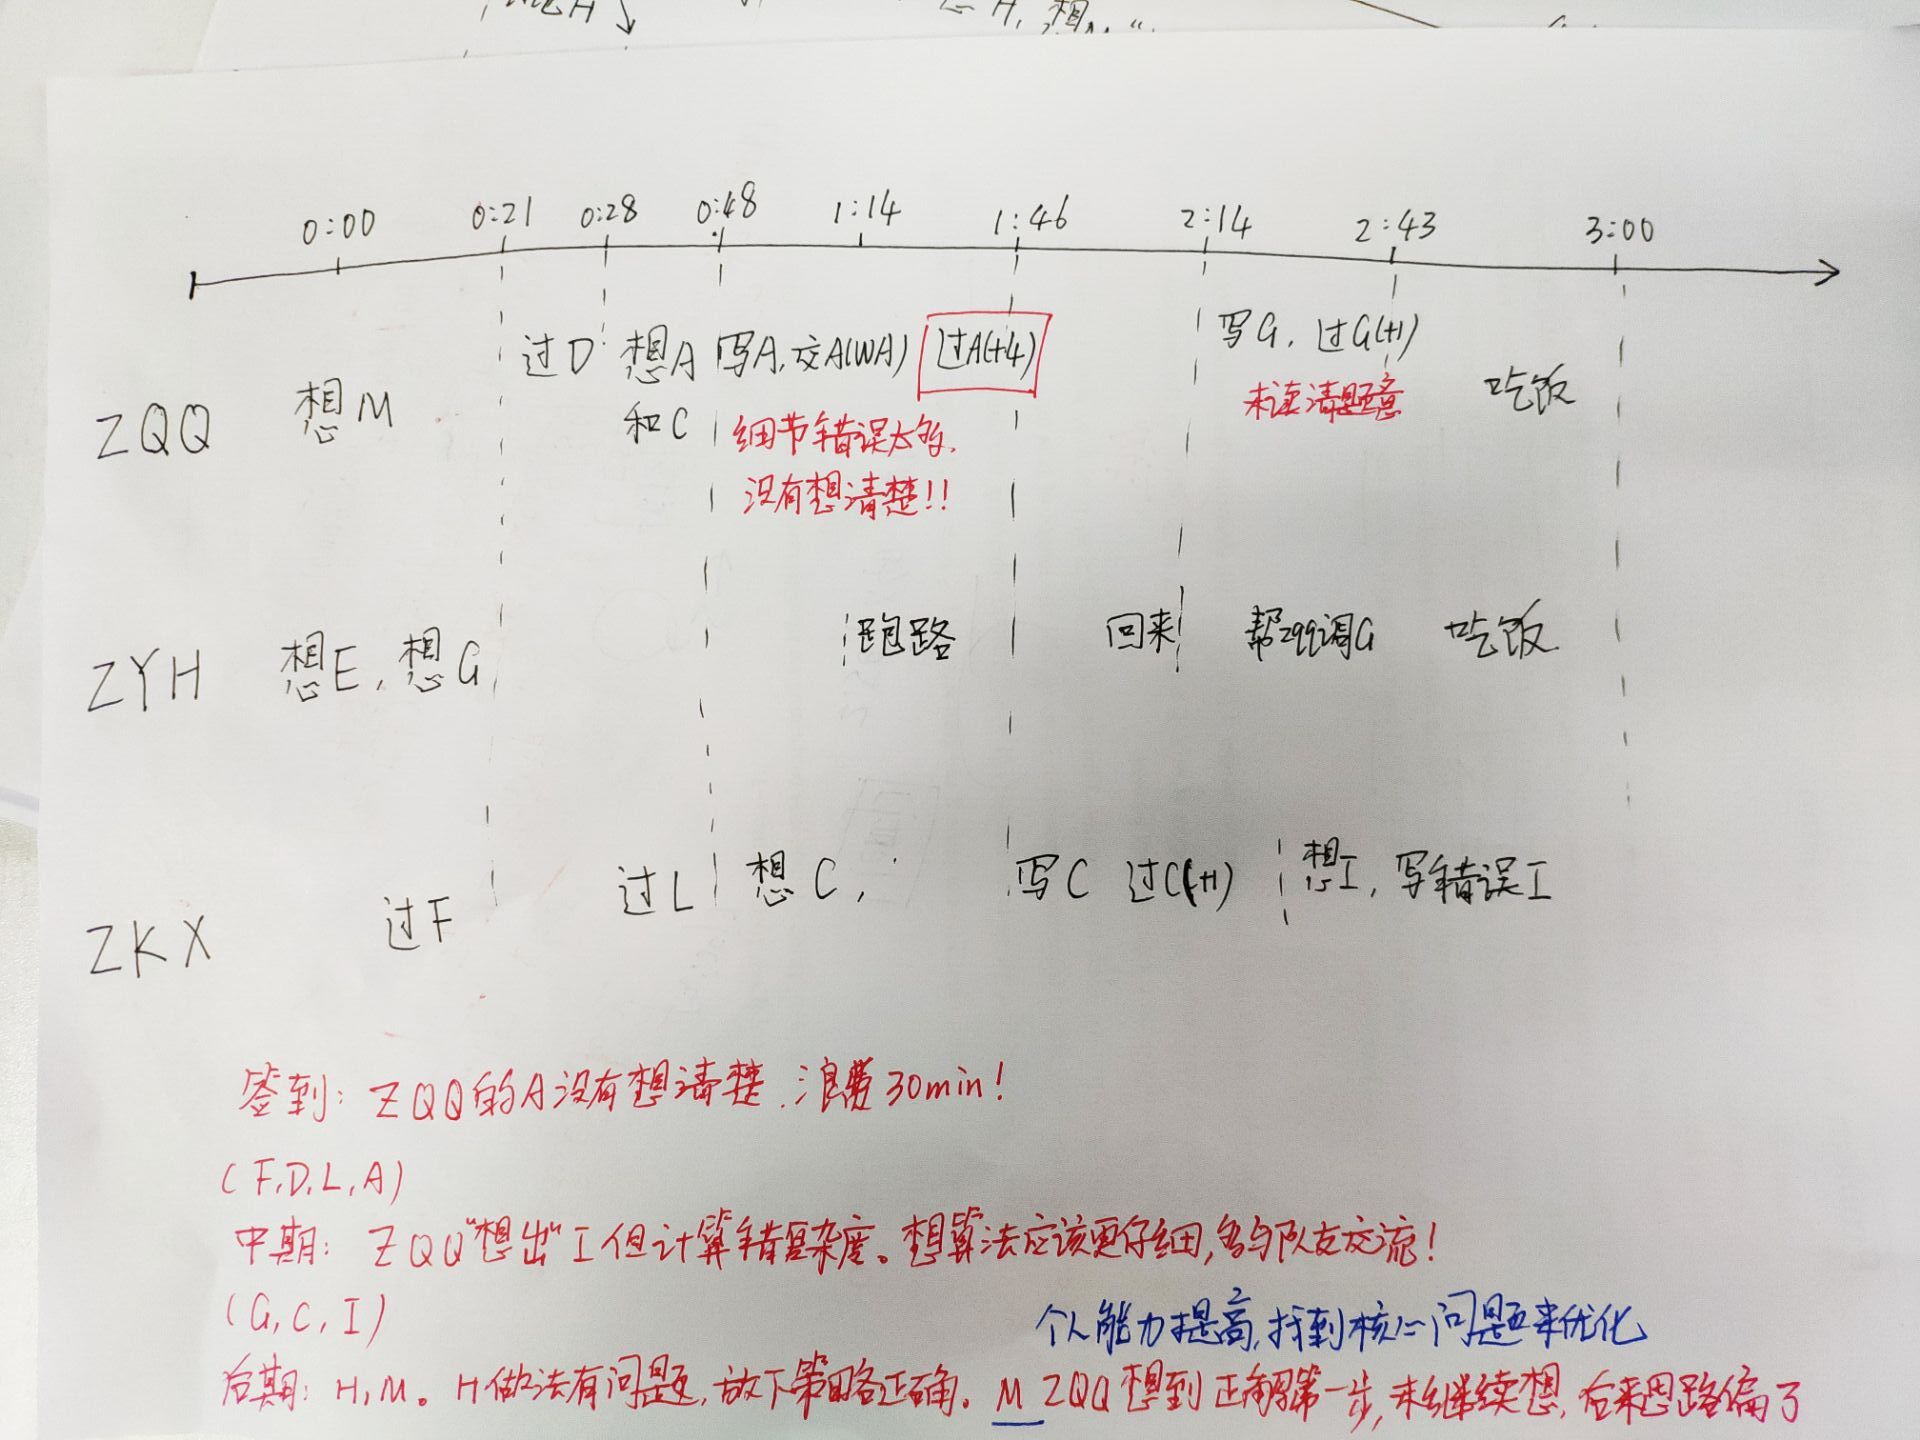 0:00 0:21 0:28 0:48 1:14 1:46 2:14 2:43 3:00
ZQQ 想M 过D 想A 写A, 交A(WA) 过A(+4) 写G, 过G(+1) 吃饭
和C 细节错误太多, 未读清题意
没有想清楚!!
ZYH 想E, 想G 跑路 回来 帮zqq调G 吃饭
ZKX 过F 过L 想C, 写C 过C(+1) 想I, 写错误I
签到: ZQQ的A没有想清楚, 浪费30min!
(F,D,L,A)
中期: ZQQ"想出"I但计算错复杂度。想算法应该更仔细, 多与队友交流!
(G,C,I)
个人能力提高, 找到核心问题来优化
后期: H,M。H做法有问题, 放下策略正确。M ZQQ想到正解第一步, 未继续想, 后来思路偏了